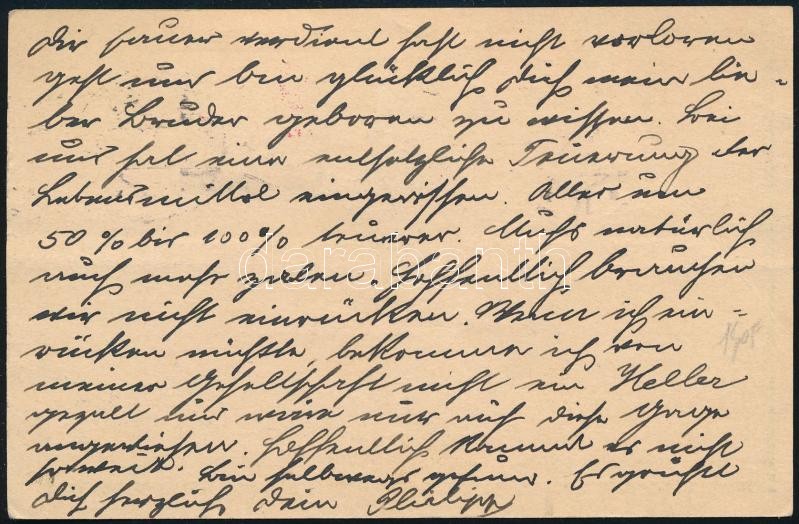 Dir sauer verdient hast nicht verloren
geht und bin glücklich Dich mein lie-
ber Bruder geboren zu wissen. Bei
uns hat eine entsetzliche Teuerung der
Lebensmittel eingerissen. Alles um
50 % bis 100 % teurer. Muss natürlich
auch mehr zalen. Hoffentlich brauchen
wir nicht einrücken. Wenn ich ein-
rücken müsste, bekomme ich von
meiner Gesellschaft nicht ein Heller
gezalt und wäre nur auf diese Gage
angewiesen. Hoffentlich kommt es nicht
soweit. Bin halbwegs gesund. Es grüsst
Dich herzlich Dein Philipp
darabanth